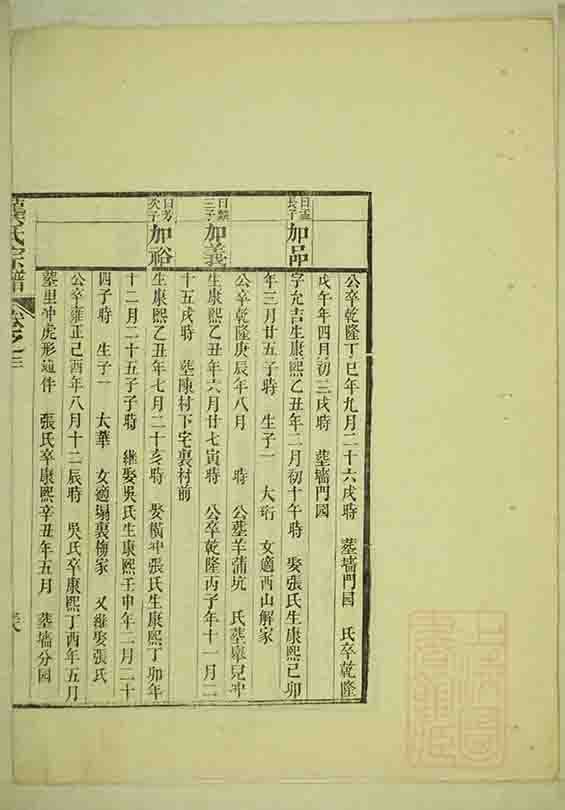 公卒乾隆丁巳年九月二十六戌時 墓墻門园 氏卒乾隆
戊午年四月初三戌時 墓墻門园
長子
加品
字允吉生康熙乙丑年二月初十午時 娶張氏生康熙己卯
年三月廿五子時 生子一 大珩 女適西山解家
公卒乾隆庚辰年八月 時 公墓羊蒲坑 氏墓舉兒冲
三子
加義
生康熙乙丑年六月廿七寅時 公卒乾隆丙子年十一月二
十五戌時 墓陳村下宅裏村前
次子
加裕
生康熙乙丑年七月二十亥時 娶橫冲張氏生康熙丁卯年
十二月二十五子時 繼娶吳氏生康熙壬申年二月二十
四子時 生子一 大華 女適塌裏柳家 又繼娶張氏
公卒雍正己酉年八月十二辰時 吳氏卒康熙丁酉年五月
墓里冲虎形 張氏卒康熙辛丑年五月 墓墻分园
氏宗譜
卷之三